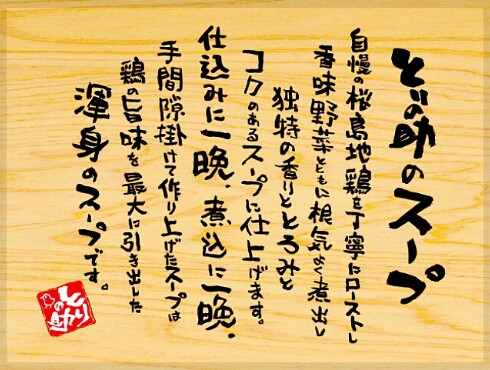 とりの助のスープ
自慢の桜島地鶏を丁寧にローストし
香味野菜とともに根気よく煮出し
独特の香りととろみと
コクのあるスープに仕上げます。
仕込みに一晩、煮込に一晩、
手間隙掛けて作り上げたスープは
鶏の旨味を最大に引き出した
渾身のスープです。
とりの助